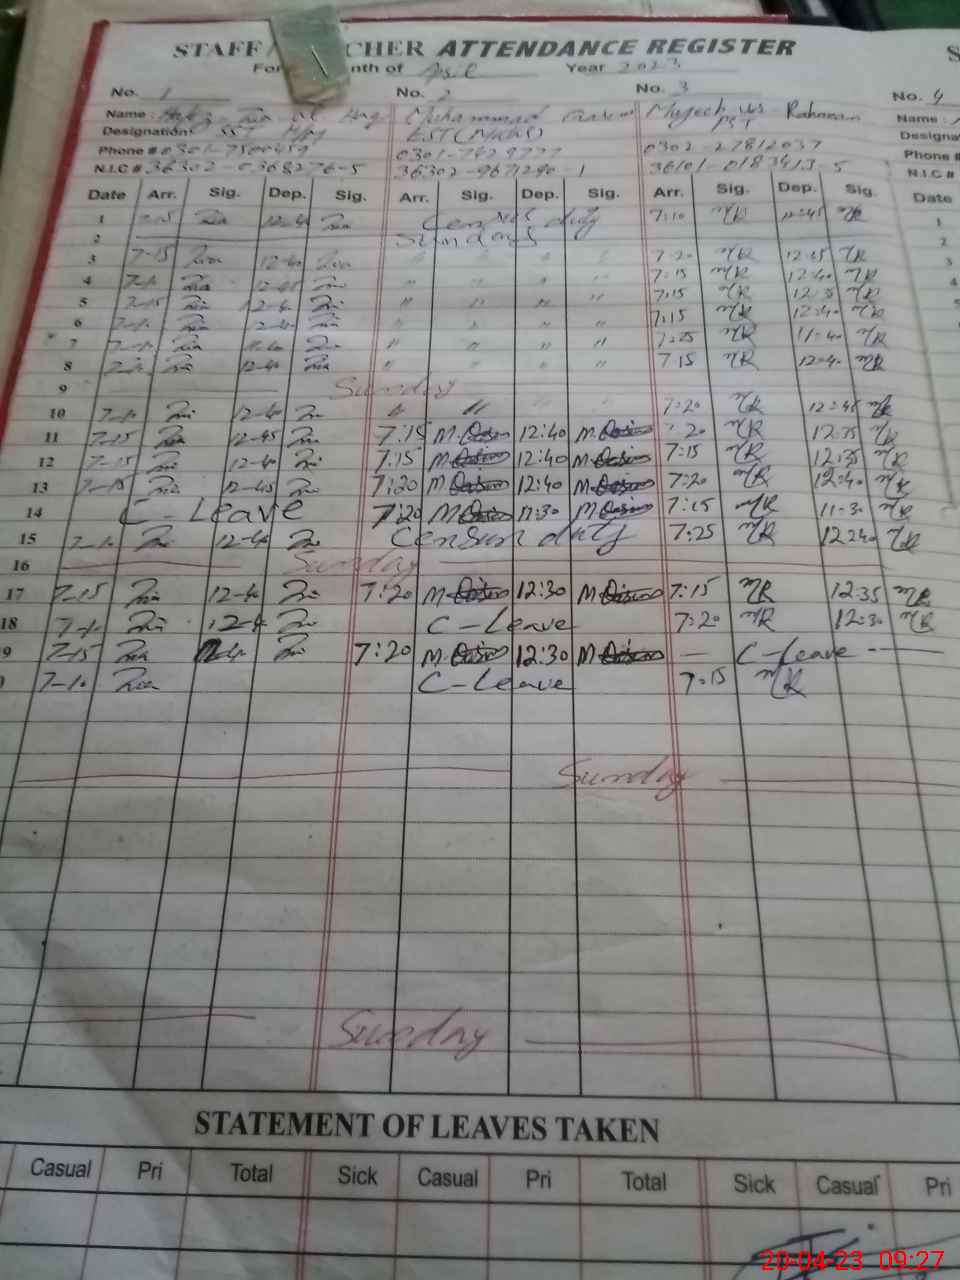 STAFF / CHER ATTENDANCE REGISTER
For nth of April Year 2023
No. 1 No. 2 No. 3 No. 4
Name : ul Haq Muhammad Mujeeb ur Rahman Name :
Designation SST EST PST Designa
Phone # 0301-7500459 0301-7429777 0302-27812037 Phone #
N.I.C # 36302-0368276-5 36302-9671290-1 36101-0183413-5 N.I.C #
Date Arr. Sig. Dep. Sig. Arr. Sig. Dep. Sig. Arr. Sig. Dep. Sig. Date
1 7-15 Zia 12-4 Zia Census duty 7:10 MR 12:45 MR 1
2 Sunday 2
3 7-15 Zia 12-40 Zia " " " " 7:20 MR 12:45 MR 3
4 7-1. Zia 12-45 Zia " " " " 7:15 MR 12:40 MR
5 7-15 Zia 12-4. Zia " " " " 7:15 MR 12:35 MR
6 7-1. Zia 12-4. Zia " " " " 7:15 MR 12:40 MR
7 7-1. Zia 11-40 Zia " " " " 7:25 MR 11-40 MR
8 7-1. Zia 12-40 Zia " " " " 7:15 MR 12-4. MR
9 Sunday
10 7-1. Zia 12-40 Zia " " " " 7:20 MR 12:45 MR
11 7-15 Zia 12-45 Zia 7:15 M. Qasim 12:40 M. Qasim 7:20 MR 12:35 MR
12 7-15 Zia 12-40 Zia 7:15 M. Qasim 12:40 M. Qasim 7:15 MR 12:35 MR
13 7-15 Zia 12-45 Zia 7:20 M. Qasim 12:40 M. Qasim 7:20 MR 12:40 MR
14 C-Leave 7:20 M. Qasim 11:30 M. Qasim 7:15 MR 11-30 MR
15 7-1. Zia 12-40 Zia Census duty 7:25 MR 12:40 MR
16 Sunday
17 7-15 Zia 12-40 Zia 7:20 M. Qasim 12:30 M. Qasim 7:15 MR 12:35 MR
18 7-1. Zia 12-4 Zia C-Leave 7:20 MR 12:30 MR
9 7-15 Zia 12-40 Zia 7:20 M. Qasim 12:30 M. Qasim — C-Leave
7-10 Zia C-Leave 7:15 MR
Sunday
Sunday
STATEMENT OF LEAVES TAKEN
Casual Pri Total Sick Casual Pri Total Sick Casual Pri
20-04-23 09:27